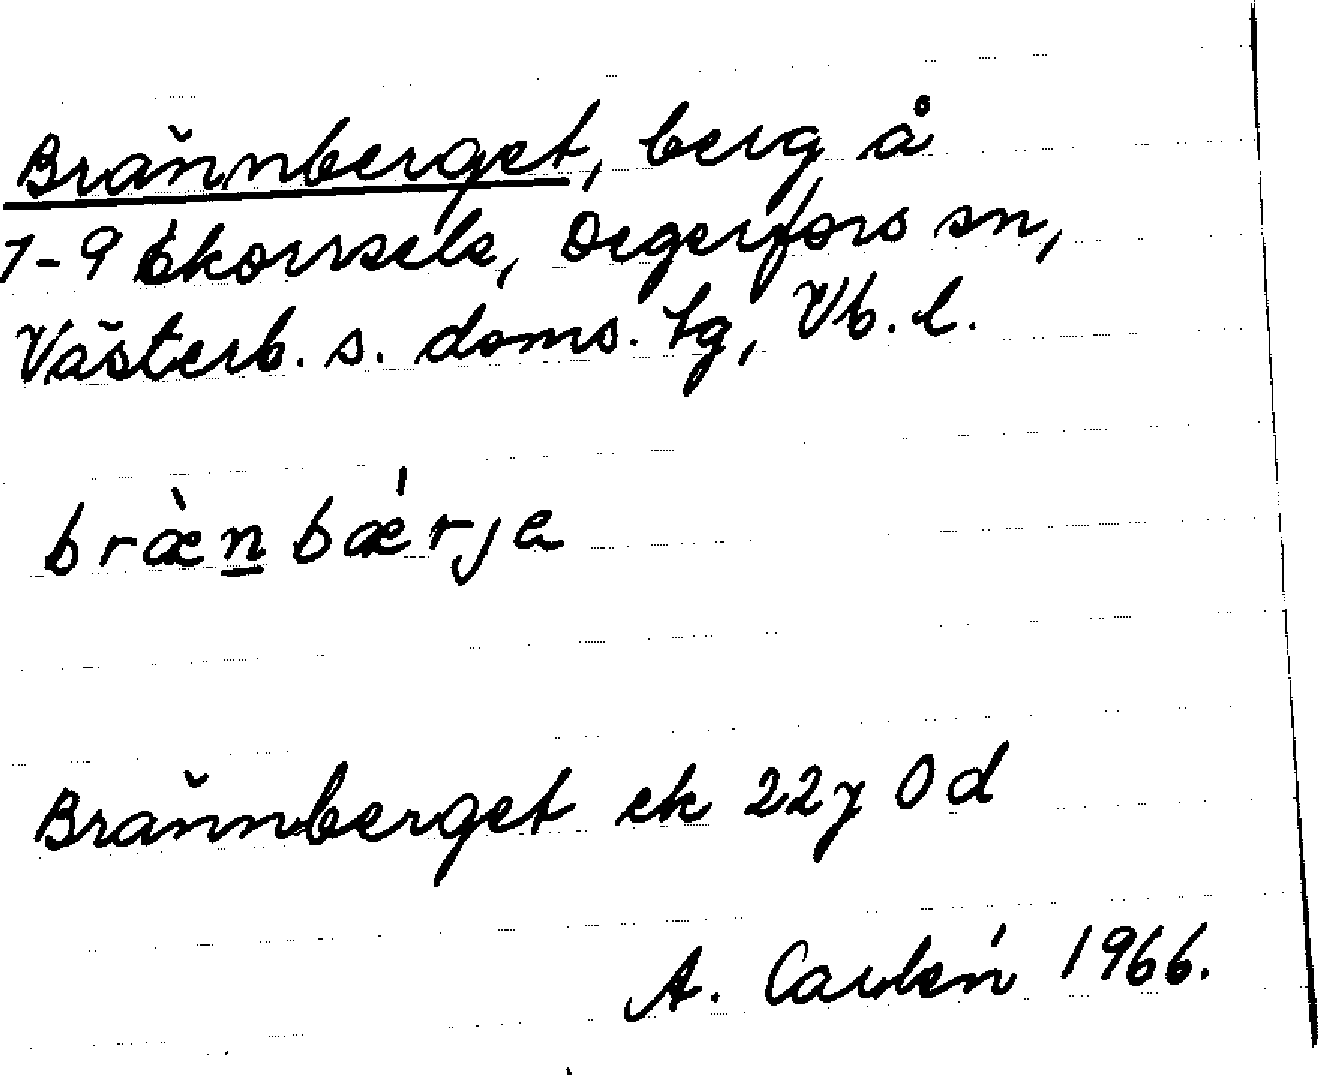 Brännberget, berg å
1-9 Ekorrsele, Degerfors sn,
Västerb. s. doms. tg, Vb. l.
bræ̀n̲bǽrje
Brännberget ek 22y 0d
A. Carlén 1966.